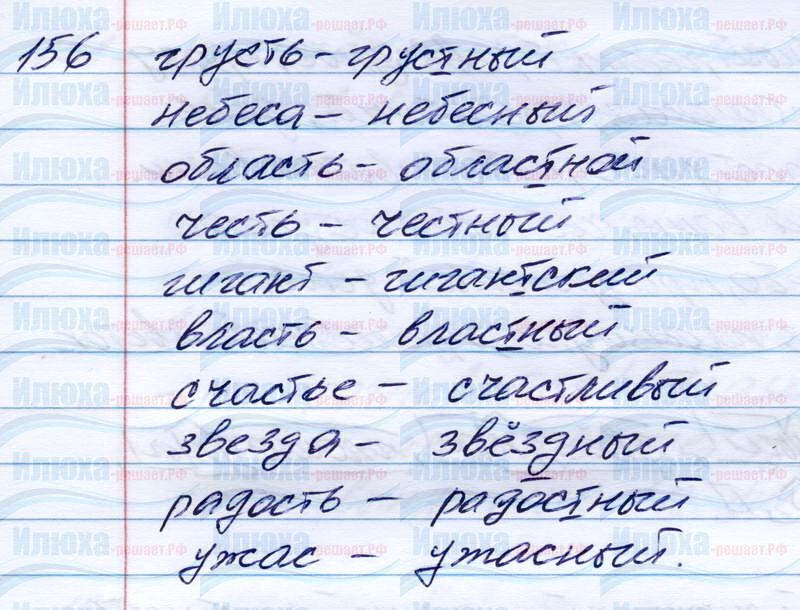 156 грусть – грустный
небеса – небесный
область – областной
честь – честный
гигант – гигантский
власть – властный
счастье – счастливый
звезда – звёздный
радость – радостный
ужас – ужасный.
Илюха-решает.РФ